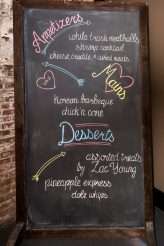 Appetizers
white trash meatballs
shrimp cocktail
cheese crostie + cured meats
Mains
Korean barbeque
chick'n cone
Desserts
assorted treats
by Zac Young
pineapple express
dole whips